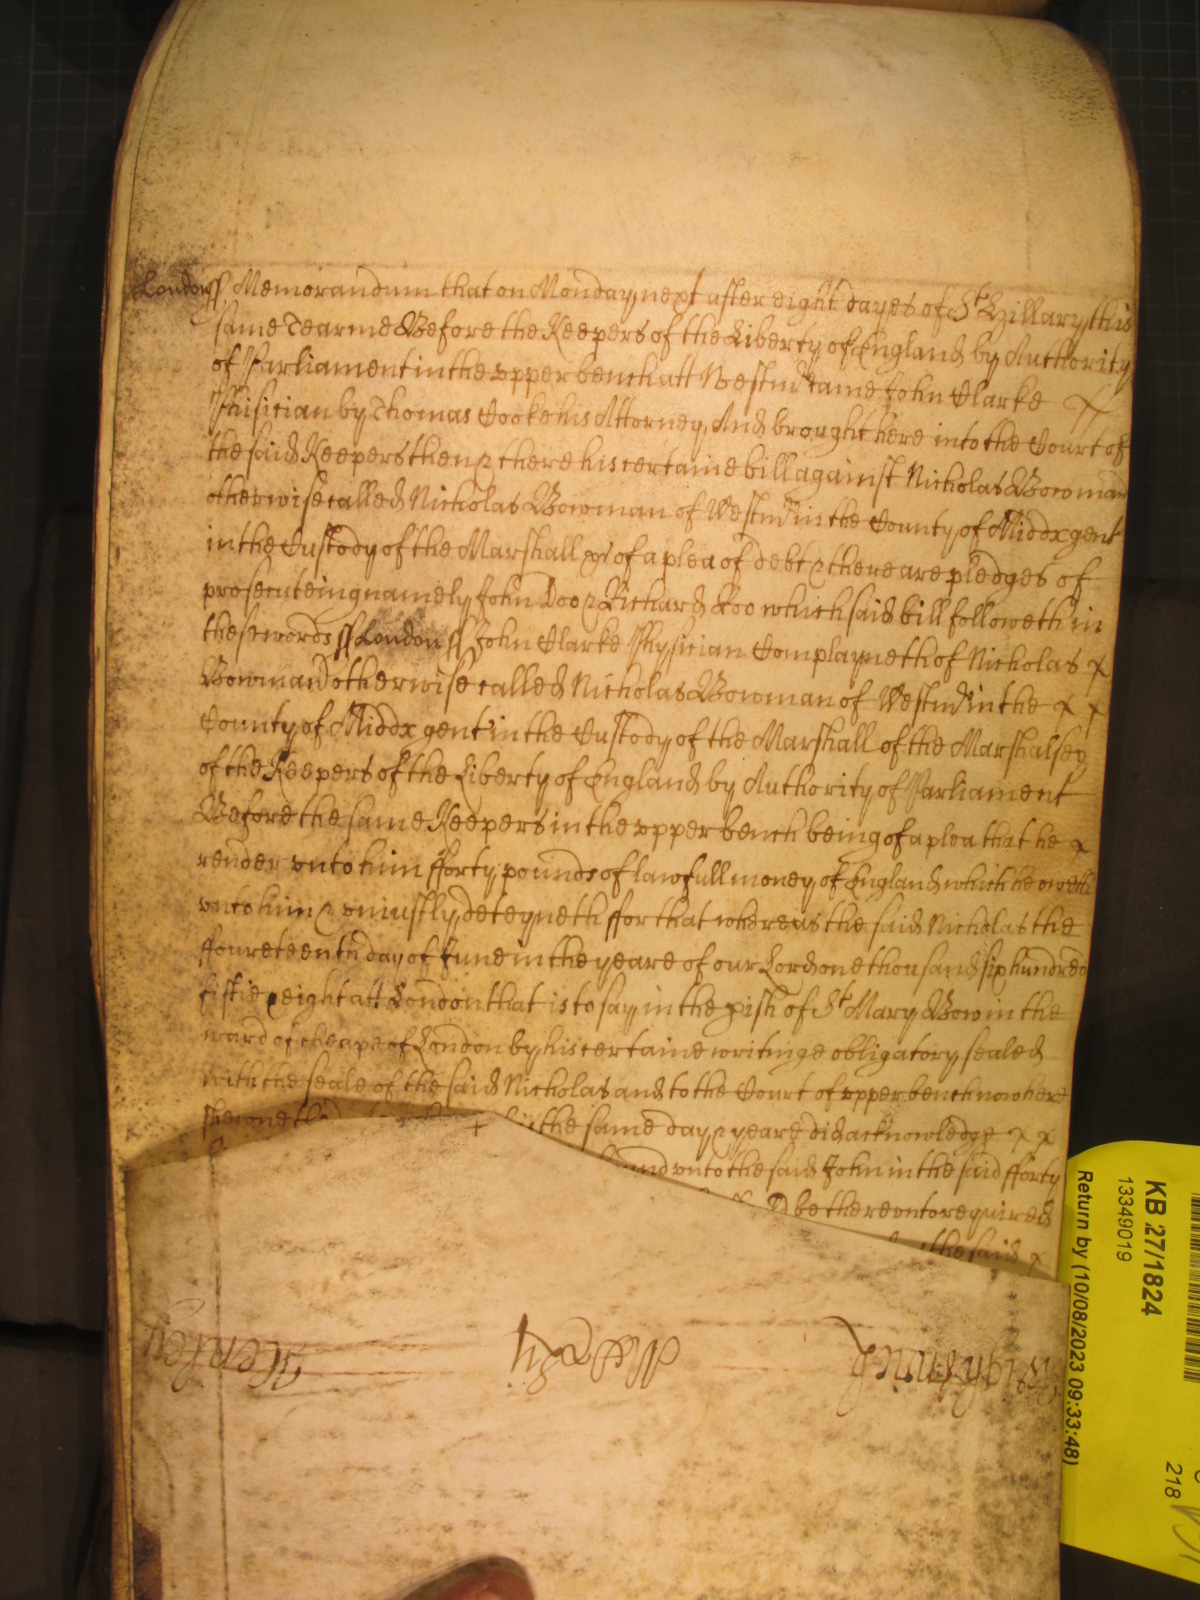 London ss Memorandum that on Monday next after eight dayes of St Hillary this
same Tearme Before the Keepers of the Liberty of England by Authority
of Parliament in the upper bench att Westmr came John Clarke
Phisician by Thomas Cooke his Attorney And brought here into the Court of
the said Keepers then & there his certaine bill against Nicholas Bowman
otherwise called Nicholas Bowman of Westmr in the County of Middx gent
in the Custody of the Marshall &c of a plea of debt & there are pledges of
prosecuteing namely John Doo & Richard Roo which said bill followeth in
these words ss London ss John Clarke Physician Complayneth of Nicholas
Bowman otherwise called Nicholas Bowman of Westmr in the
County of Middx gent in the Custody of the Marshall of the Marshalsey
of the Keepers of the Liberty of England by Authority of Parliament
Before the same Keepers in the upper bench being of a plea that he
render vnto him fforty pounds of lawfull money of England which he oweth
vnto him & vniustly deteyneth ffor that whereas the said Nicholas the
ffoureteenth day of June in the yeare of our Lord one thousand six hundred
fiftie eight att London that is to say in the pish of St Mary Bow in the
ward of cheape of London by his certaine writinge obligatory sealed
with the seale of the said Nicholas and to the Court of upper bench now here
the same day & yeare did acknowledge
vnto the said John in the said fforty
be therevnto required
the said
Henley
KB 27/1824
13349019
Return by (10/08/2023 09:33:48)
218